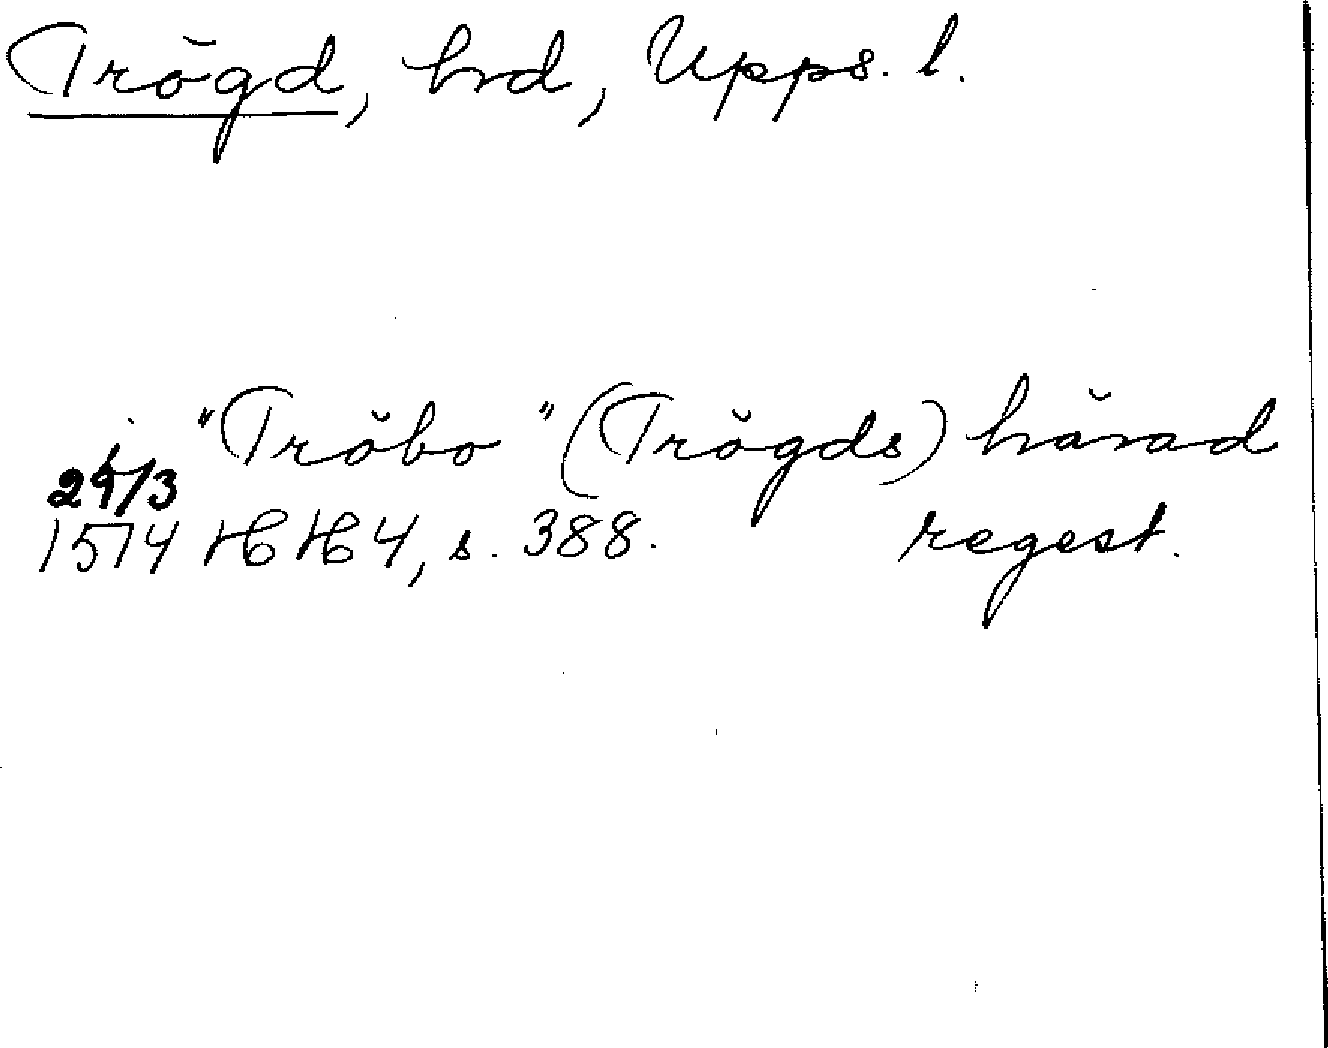 Trögd, hrd, Upps. l.
i "Tröbo" (Trögds) härad
24/3
1574 HH 4, s. 388. regest.